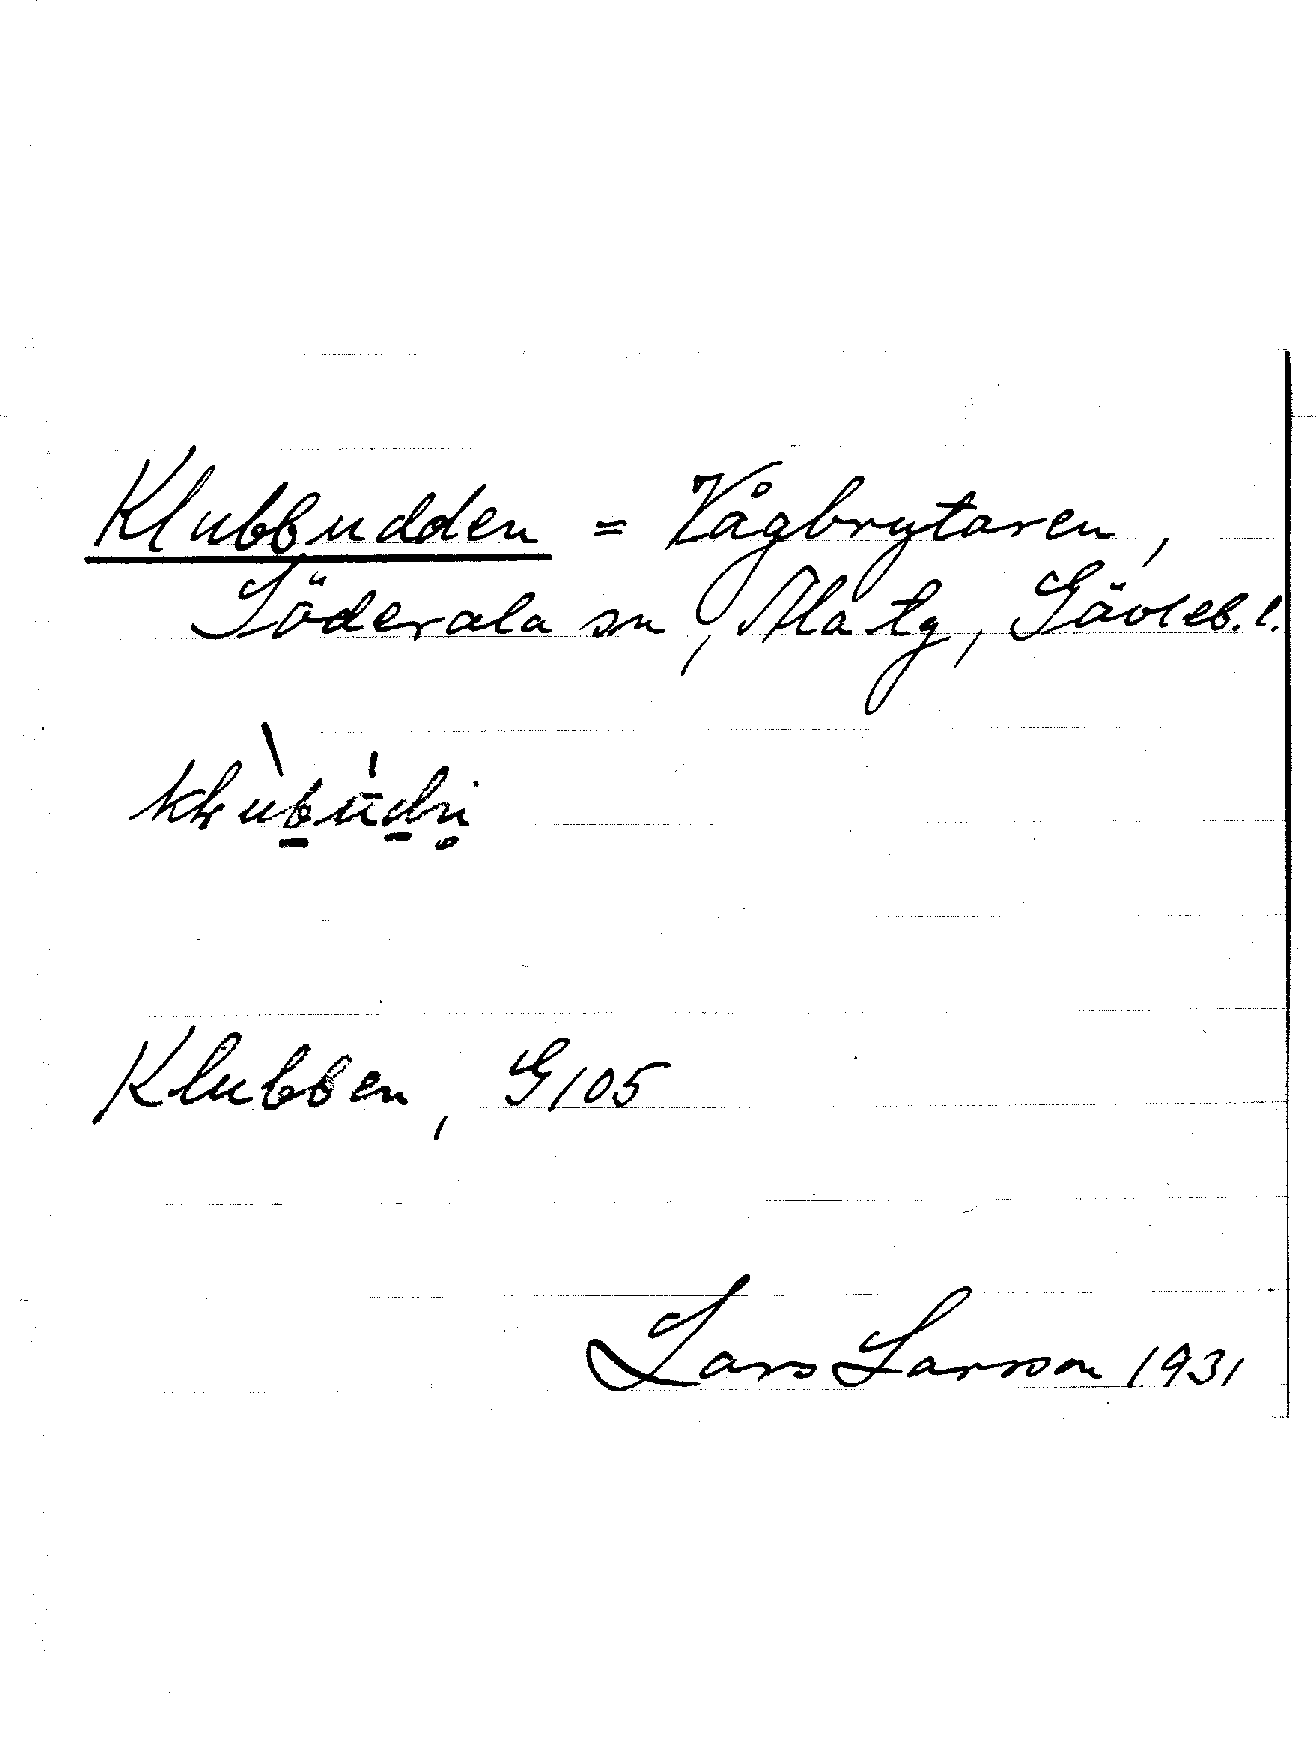 Klubbudden = Vågbrytaren,
Söderala sn, Ala tg, Gävleb. l.
Klubben, G105
Lars Larsson 1931